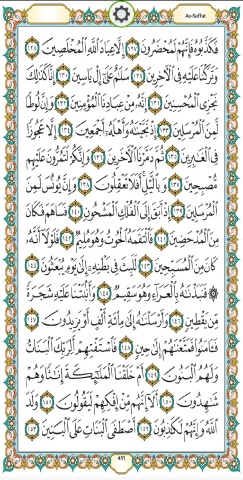 As-Saffat
فَكَذَّبُوهُ فَإِنَّهُمْ لَمُحْضَرُونَ ١٢٧ إِلَّا عِبَادَ ٱللَّهِ ٱلْمُخْلَصِينَ ١٢٨
وَتَرَكْنَا عَلَيْهِ فِى ٱلْـَٔاخِرِينَ ١٢٩ سَلَٰمٌ عَلَىٰٓ إِلْ يَاسِينَ ١٣٠ إِنَّا كَذَٰلِكَ
نَجْزِى ٱلْمُحْسِنِينَ ١٣١ إِنَّهُۥ مِنْ عِبَادِنَا ٱلْمُؤْمِنِينَ ١٣٢ وَإِنَّ لُوطًا
لَّمِنَ ٱلْمُرْسَلِينَ ١٣٣ إِذْ نَجَّيْنَٰهُ وَأَهْلَهُۥٓ أَجْمَعِينَ ١٣٤ إِلَّا عَجُوزًا
فِى ٱلْغَٰبِرِينَ ١٣٥ ثُمَّ دَمَّرْنَا ٱلْـَٔاخَرِينَ ١٣٦ وَإِنَّكُمْ لَتَمُرُّونَ عَلَيْهِم
مُّصْبِحِينَ ١٣٧ وَبِٱلَّيْلِ أَفَلَا تَعْقِلُونَ ١٣٨ وَإِنَّ يُونُسَ لَمِنَ
ٱلْمُرْسَلِينَ ١٣٩ إِذْ أَبَقَ إِلَى ٱلْفُلْكِ ٱلْمَشْحُونِ ١٤٠ فَسَاهَمَ فَكَانَ
مِنَ ٱلْمُدْحَضِينَ ١٤١ فَٱلْتَقَمَهُ ٱلْحُوتُ وَهُوَ مُلِيمٌ ١٤٢ فَلَوْلَآ أَنَّهُۥ
كَانَ مِنَ ٱلْمُسَبِّحِينَ ١٤٣ لَلَبِثَ فِى بَطْنِهِۦٓ إِلَىٰ يَوْمِ يُبْعَثُونَ ١٤٤
۞ فَنَبَذْنَٰهُ بِٱلْعَرَآءِ وَهُوَ سَقِيمٌ ١٤٥ وَأَنۢبَتْنَا عَلَيْهِ شَجَرَةً
مِّن يَقْطِينٍ ١٤٦ وَأَرْسَلْنَٰهُ إِلَىٰ مِا۟ئَةِ أَلْفٍ أَوْ يَزِيدُونَ ١٤٧
فَـَٔامَنُوا۟ فَمَتَّعْنَٰهُمْ إِلَىٰ حِينٍ ١٤٨ فَٱسْتَفْتِهِمْ أَلِرَبِّكَ ٱلْبَنَاتُ
وَلَهُمُ ٱلْبَنُونَ ١٤٩ أَمْ خَلَقْنَا ٱلْمَلَٰٓئِكَةَ إِنَٰثًا وَهُمْ
شَٰهِدُونَ ١٥٠ أَلَآ إِنَّهُم مِّنْ إِفْكِهِمْ لَيَقُولُونَ ١٥١ وَلَدَ
ٱللَّهُ وَإِنَّهُمْ لَكَٰذِبُونَ ١٥٢ أَصْطَفَى ٱلْبَنَاتِ عَلَى ٱلْبَنِينَ ١٥٣
451